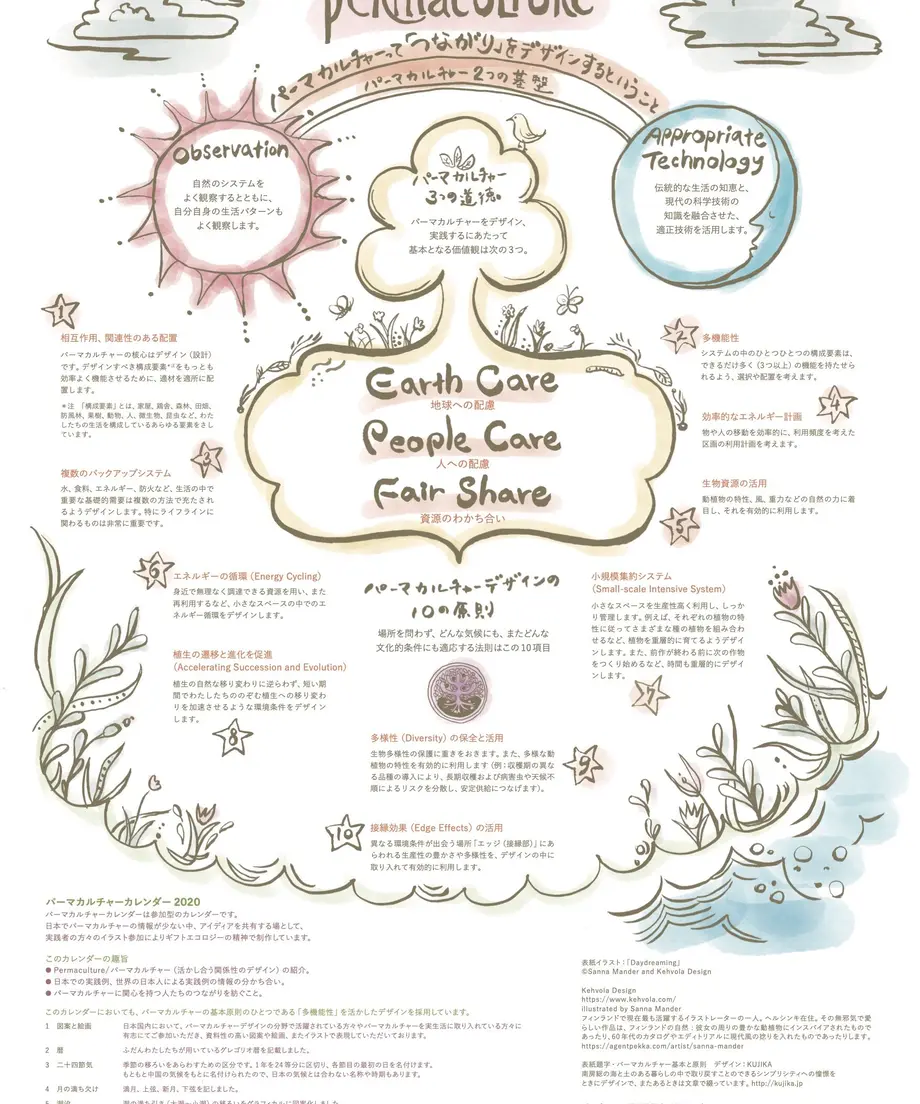 Permaculture
パーマカルチャーって「つながり」をデザインするということ
パーマカルチャー2つの基盤
Observation
自然のシステムを
よく観察するとともに、
自分自身の生活パターンも
よく観察します。
パーマカルチャー
3つの道徳
パーマカルチャーをデザイン、
実践するにあたって
基本となる価値観は次の3つ。
Appropriate
Technology
伝統的な生活の知恵と、
現代の科学技術の
知識を融合させた、
適正技術を活用します。
Earth Care
地球への配慮
People Care
人への配慮
Fair Share
資源のわかち合い
1
相互作用、関連性のある配置
パーマカルチャーの核心はデザイン(設計)
です。デザインすべき構成要素*¹をもっとも
効率よく機能させるために、適材を適所に配
置します。
*注 「構成要素」とは、家屋、鶏舎、森林、田畑、
防風林、果樹、動物、人、微生物、昆虫など、わた
したちの生活を構成しているあらゆる要素をさし
ています。
2
多機能性
システムの中のひとつひとつの構成要素は、
できるだけ多く(3つ以上)の機能を持たせら
れるよう、選択や配置を考えます。
3
複数のバックアップシステム
水、食料、エネルギー、防火など、生活の中で
重要な基礎的需要は複数の方法で充たされ
るようデザインします。特にライフラインに
関わるものは非常に重要です。
4
効率的なエネルギー計画
物や人の移動を効率的に、利用頻度を考えた
区画の利用計画を考えます。
生物資源の活用
動植物の特性、風、重力などの自然の力に着
目し、それを有効的に利用します。
5
6
エネルギーの循環(Energy Cycling)
身近で無理なく調達できる資源を用い、また
再利用するなど、小さなスペースの中でのエ
ネルギー循環をデザインします。
パーマカルチャーデザインの
10の原則
場所を問わず、どんな気候にも、またどんな
文化的条件にも適応する法則はこの10項目
小規模集約システム
(Small-scale Intensive System)
小さなスペースを生産性高く利用し、しっか
り管理します。例えば、それぞれの植物の特
性に従ってさまざまな種の植物を組み合わ
せるなど、植物を重層的に育てるようデザイ
ンします。また、前作が終わる前に次の作物
をつくり始めるなど、時間も重層的にデザイ
ンします。
7
植生の遷移と進化を促進
(Accelerating Succession and Evolution)
植生の自然な移り変わりに逆らわず、短い期
間でわたしたちののぞむ植生への移り変わ
りを加速させるような環境条件をデザイン
します。
8
多様性(Diversity)の保全と活用
生物多様性の保護に重きをおきます。また、多様な動
植物の特性を有効的に利用します(例:収穫期の異な
る品種の導入により、長期収穫および病害虫や天候不
順によるリスクを分散し、安定供給につなげます)。
9
10
接縁効果(Edge Effects)の活用
異なる環境条件が出会う場所「エッジ(接縁部)」にあ
らわれる生産性の豊かさや多様性を、デザインの中に
取り入れて有効的に利用します。
パーマカルチャーカレンダー 2020
パーマカルチャーカレンダーは参加型のカレンダーです。
日本でパーマカルチャーの情報が少ない中、アイディアを共有する場として、
実践者の方々のイラスト参加によりギフトエコロジーの精神で制作しています。
このカレンダーの趣旨
● Permaculture/パーマカルチャー(活かし合う関係性のデザイン)の紹介。
● 日本での実践例、世界の日本人による実践例の情報の分かち合い。
● パーマカルチャーに関心を持つ人たちのつながりを紡ぐこと。
このカレンダーにおいても、パーマカルチャーの基本原則のひとつである「多機能性」を活かしたデザインを採用しています。
1 図案と絵画 日本国内において、パーマカルチャーデザインの分野で活躍されている方々やパーマカルチャーを実生活に取り入れている方々に
有志にてご参加いただき、資料性の高い図案や絵画、またイラストで表現していただいております。
2 暦 ふだんわたしたちが用いているグレゴリオ暦を記載しました。
3 二十四節気 季節の移ろいをあらわすための区分です。1年を24等分に区切り、各節目の最初の日を名付けます。
もともと中国の気候をもとに名付けられたので、日本の気候とは合わない名称や時期もあります。
4 月の満ち欠け 満月、上弦、新月、下弦を記しました。
表紙イラスト:「Daydreaming」
©Sanna Mander and Kehvola Design
Kehvola Design
https://www.kehvola.com/
illustrated by Sanna Mander
フィンランドで現在最も活躍するイラストレーターの一人。ヘルシンキ在住。その無邪気で愛
らしい作品は、フィンランドの自然:彼女の周りの豊かな動植物にインスパイアされたもので
あったり、60年代のカタログやエディトリアルに現代風の捻りを入れたものであったりします。
https://agentpekka.com/artist/sanna-mander
表紙題字・パーマカルチャー基本と原則 デザイン:KUJIKA
南房総の海と土のある暮らしの中で取り戻すことのできるシンプリシティへの憧憬を
ときにデザインで、またあるときは文章で綴っています。http://kujika.jp